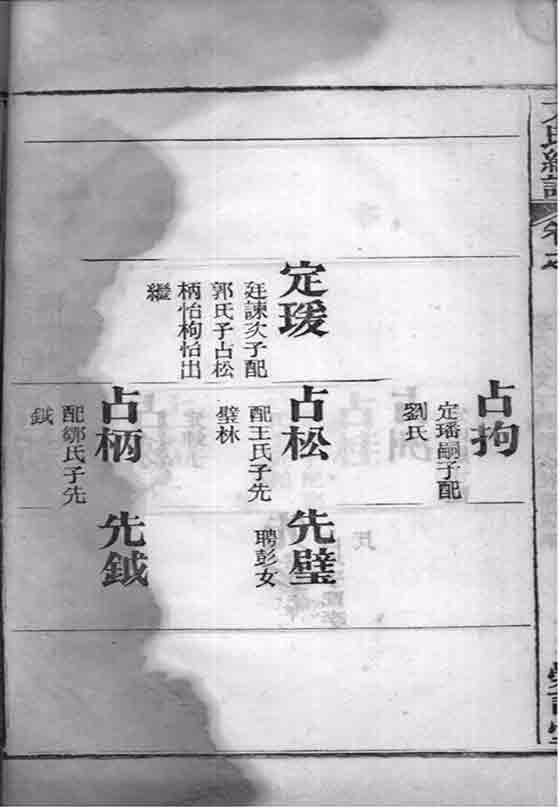 定瑗
廷諫次子配
郭氏子占松
柄怡枸怡出
繼
占拘
定璠嗣子配
劉氏
占松
配王氏子先
璧林
占柄
配鄒氏子先
鉞
先璧
聘彭女
先鉞